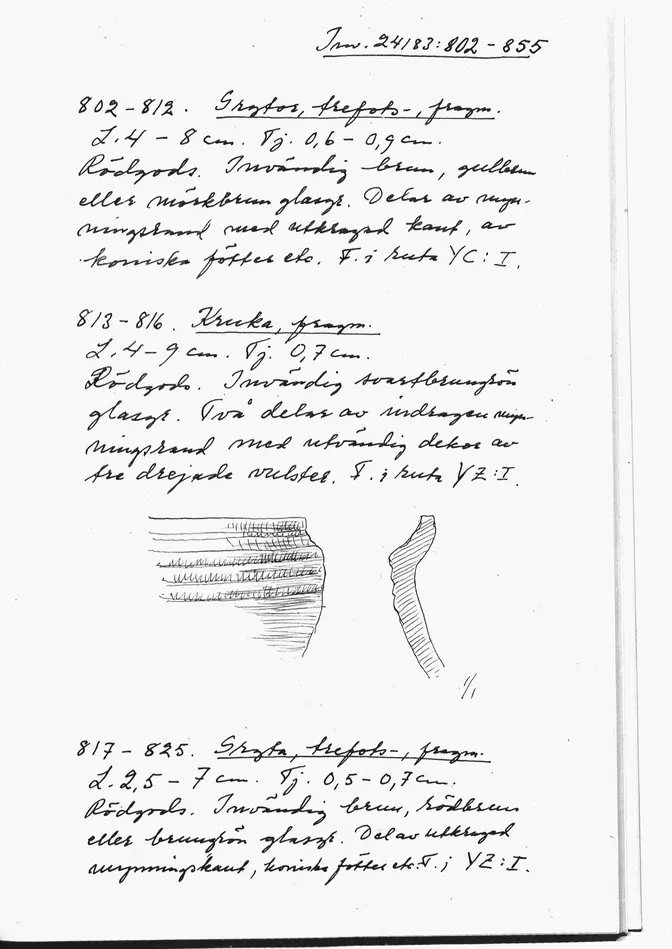 Inv. 24183:802-855
802-812. Grytor, trefots-, fragm.
L. 4 - 8 cm. Tj. 0,6 - 0,9 cm.
Rödgods. Invändig brun, gulbrun
eller mörkbrun glasyr. Delar av myn-
ningsrand med utkragad kant, av
koniska fötter etc. F. i ruta YC:I.
813-816. Kruka, fragm.
L. 4-9 cm. Tj. 0,7 cm.
Rödgods. Invändig svartbrungrön
glasyr. Två delar av indragen myn-
ningsrand med utvändig dekor av
tre drejade vulster. F. i ruta YZ:I.
1/1
817-825. Gryta, trefots-, fragm.
L. 2,5 - 7 cm. Tj. 0,5 - 0,7 cm.
Rödgods. Invändig brun, rödbrun
eller brungrön glasyr. Del av utkragad
mynningskant, koniska fötter etc. F. i YZ:I.